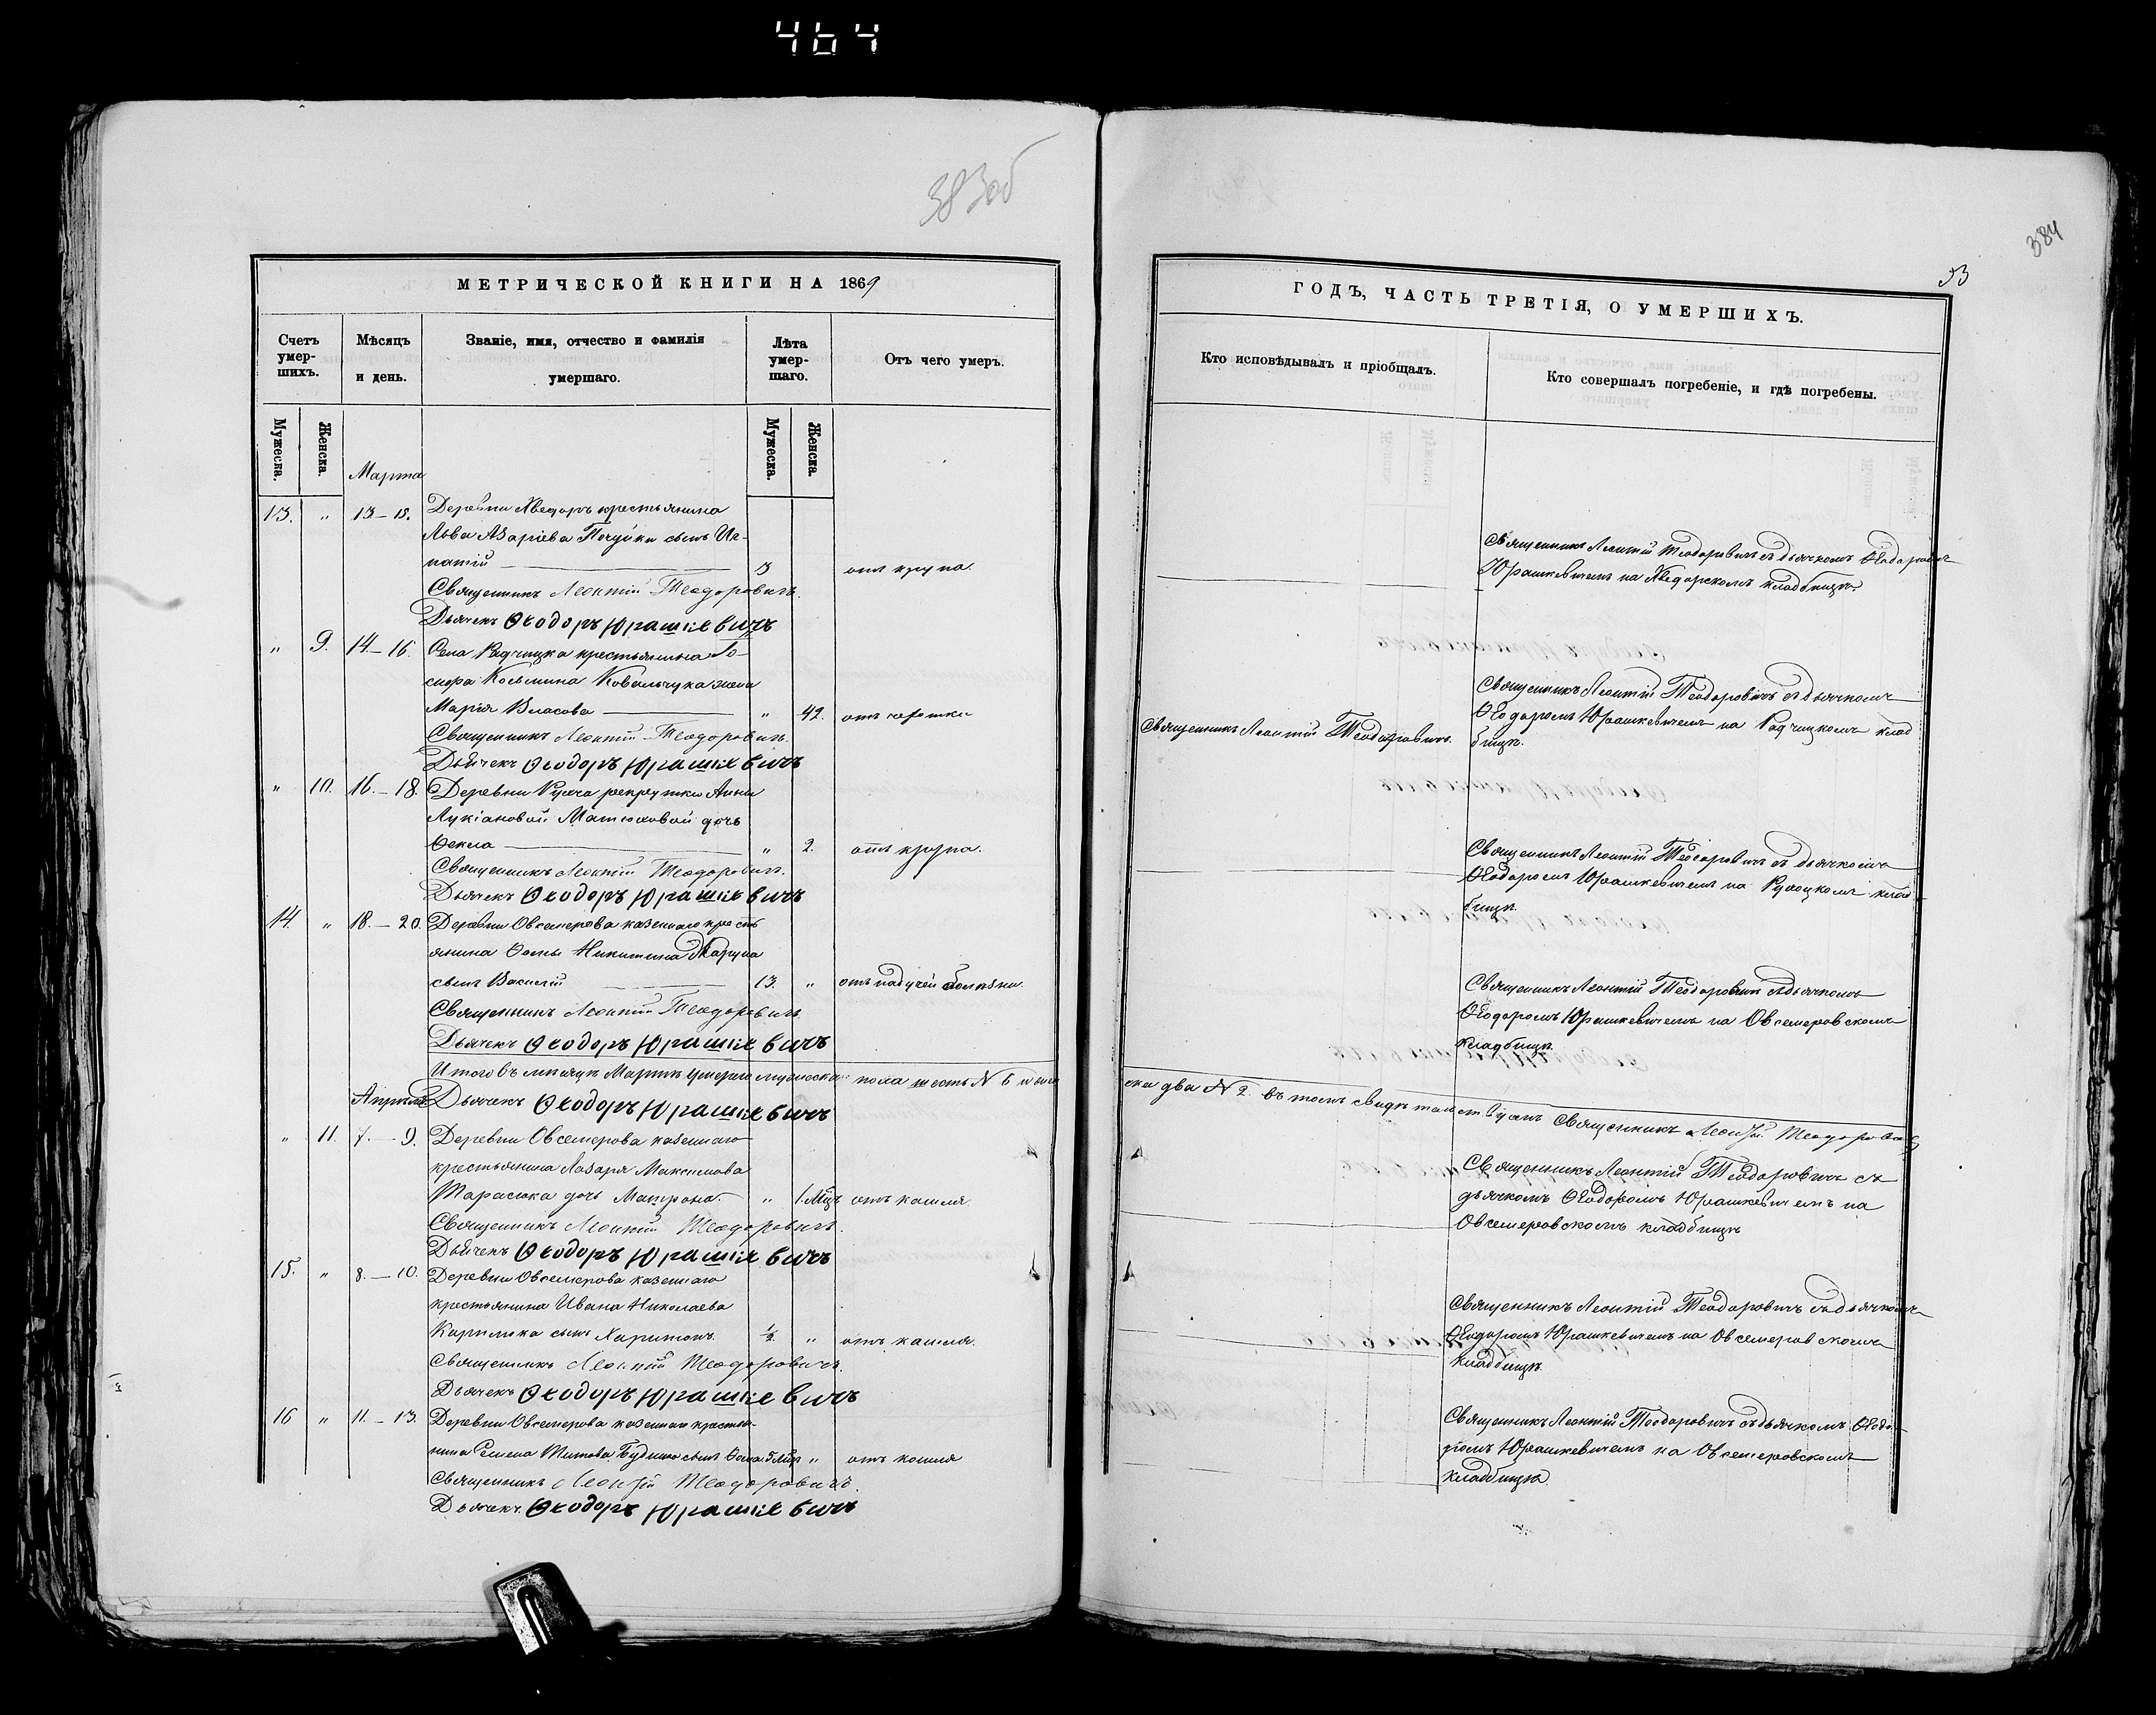 464
383об
МЕТРИЧЕСКОЙ КНИГИ НА 1869
Счетъ умер-шихъ.
Мѣсяцъ и день.
Званіе, имя, отчество и фамилія умершаго.
Лѣта умер-шаго.
Отъ чего умеръ.
Мужеска.
Женска.
Мужеска.
Женска.
Марта
13. " 13-15. Деревни Хведоръ крестьянина
Льва Азаріева сынъ Иг-
натій 3 отъ крупа.
Священникъ Леонтій Теодоровичъ.
Дьячекъ Ѳеодоръ Юрашкевичъ
" 9. 14-16. Села Радчицка крестьянина Іо-
сифа Козьмина Ковальчука жена
Марія Власова " 42. отъ чахотки
Священникъ Леонтій Теодоровичъ.
Дьячекъ Ѳеодоръ Юрашкевичъ
" 10. 16.-18. Деревни рекрутки Анны
Лукіановой дочь
Ѳекла " 2. отъ крупа.
Священникъ Леонтій Теодоровичъ.
Дьячекъ Ѳеодоръ Юрашкевичъ
14. " 18.-20. Деревни Овсемерова казеннаго кресть
янина Ѳомы Никитина
сынъ Василій 13. " отъ падучей болѣзни.
Священникъ Леонтій Теодоровичъ
Дьячекъ Ѳеодоръ Юрашкевичъ
Итого въ мѣсяцѣ Мартѣ умерло мужеска пола шесть N 6 и жен
Апрѣль Дьячекъ Ѳеодоръ Юрашкевичъ
" 11. 7.-9. Деревни Овсемерова казеннаго
крестьянина Лазаря Максимова
Тарасюка дочь Матрона. " 1. Мцъ отъ кашля.
Священникъ Леонтій Теодоровичъ.
Дьячекъ Ѳеодоръ Юрашкевичъ
15. " 8.-10. Деревни Овсемерова казеннаго
крестьянина Ивана Николаева
сынъ Харитонъ 1/2 " отъ кашля.
Священникъ Леонтій Теодоровичъ.
Дьячекъ Ѳеодоръ Юрашкевичъ
16 " 11.-13. Деревни Овсемерова казеннаго крестья-
нина Семена Титова сынъ Ѳома 5 Мцъ " отъ кашля
Священникъ Леонтій Теодоровичъ.
Дьячекъ Ѳеодоръ Юрашкевичъ
384
53
ГОДЪ, ЧАСТЬ ТРЕТІЯ, О УМЕРШИХЪ.
Кто исповѣдывалъ и пріобщалъ.
Кто совершалъ погребеніе, и гдѣ погребены.
Священникъ Леонтій Теодоровичъ съ дьячкомъ Ѳеодоромъ
Юрашкевичемъ на Хведорскомъ кладбищѣ.
Священникъ Леонтій Теодоровичъ съ дьячкомъ
Священникъ Леонтій Теодоровичъ. Ѳеодоромъ Юрашкевичемъ на Радчицкомъ клад
бищѣ.
Священникъ Леонтій Теодоровичъ съ дьячкомъ
Ѳеодоромъ Юрашкевичемъ на клад-
бищѣ.
Священникъ Леонтій Теодоровичъ съ дьячкомъ
Ѳеодоромъ Юрашкевичемъ на Овсемеровскомъ
кладбищѣ.
ска два N 2. въ томъ свидѣтельствуемъ Священникъ Леонтій Теодоровичъ
Священникъ Леонтій Теодоровичъ съ
дьячкомъ Ѳеодоромъ Юрашкевичемъ на
Овсемеровскомъ кладбищѣ
Священникъ Леонтій Теодоровичъ съ дьячкомъ
Ѳеодоромъ Юрашкевичемъ на Овсемеровскомъ
кладбищѣ.
Священникъ Леонтій Теодоровичъ съ дьячкомъ Ѳеодо-
ромъ Юрашкевичемъ на Овсемеровскомъ
кладбищѣ.